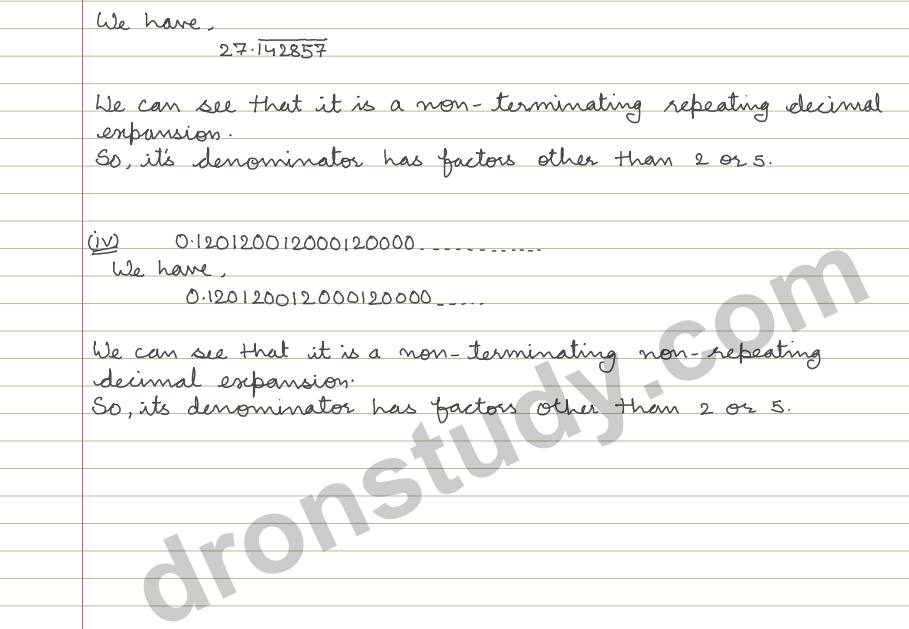 We have,
27.1̅4̅2̅8̅5̅7̅
We can see that it is a non-terminating repeating decimal
expansion.
So, it's denominator has factors other than 2 or 5.
(iv) 0.120120012000120000.............
We have,
0.120120012000120000.....
We can see that it is a non-terminating non-repeating
decimal expansion.
So, its denominator has factors other than 2 or 5.
dronstudy.com